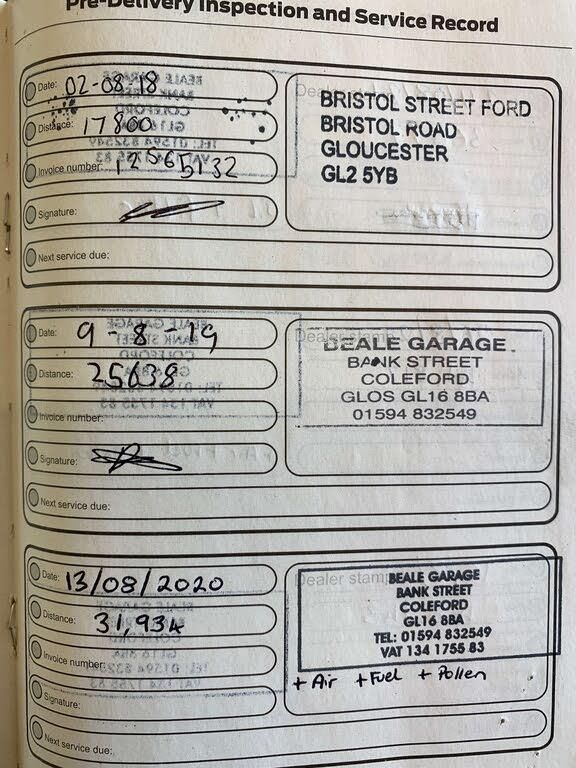 Pre-Delivery Inspection and Service Record
Date: 02-08-18
Distance: 17800
Invoice number: 12565132
Signature:
Next service due:
Dealer stamp
BRISTOL STREET FORD
BRISTOL ROAD
GLOUCESTER
GL2 5YB
Date: 9-8-19
Distance: 25638
Invoice number:
Signature:
Next service due:
Dealer stamp
BEALE GARAGE.
BANK STREET
COLEFORD
GLOS GL16 8BA
01594 832549
Date: 13/08/2020
Distance: 31,934
Invoice number:
Signature:
Next service due:
Dealer stamp
BEALE GARAGE
BANK STREET
COLEFORD
GL16 8BA
TEL: 01594 832549
VAT 134 1755 83
+ Air + Fuel + Pollen